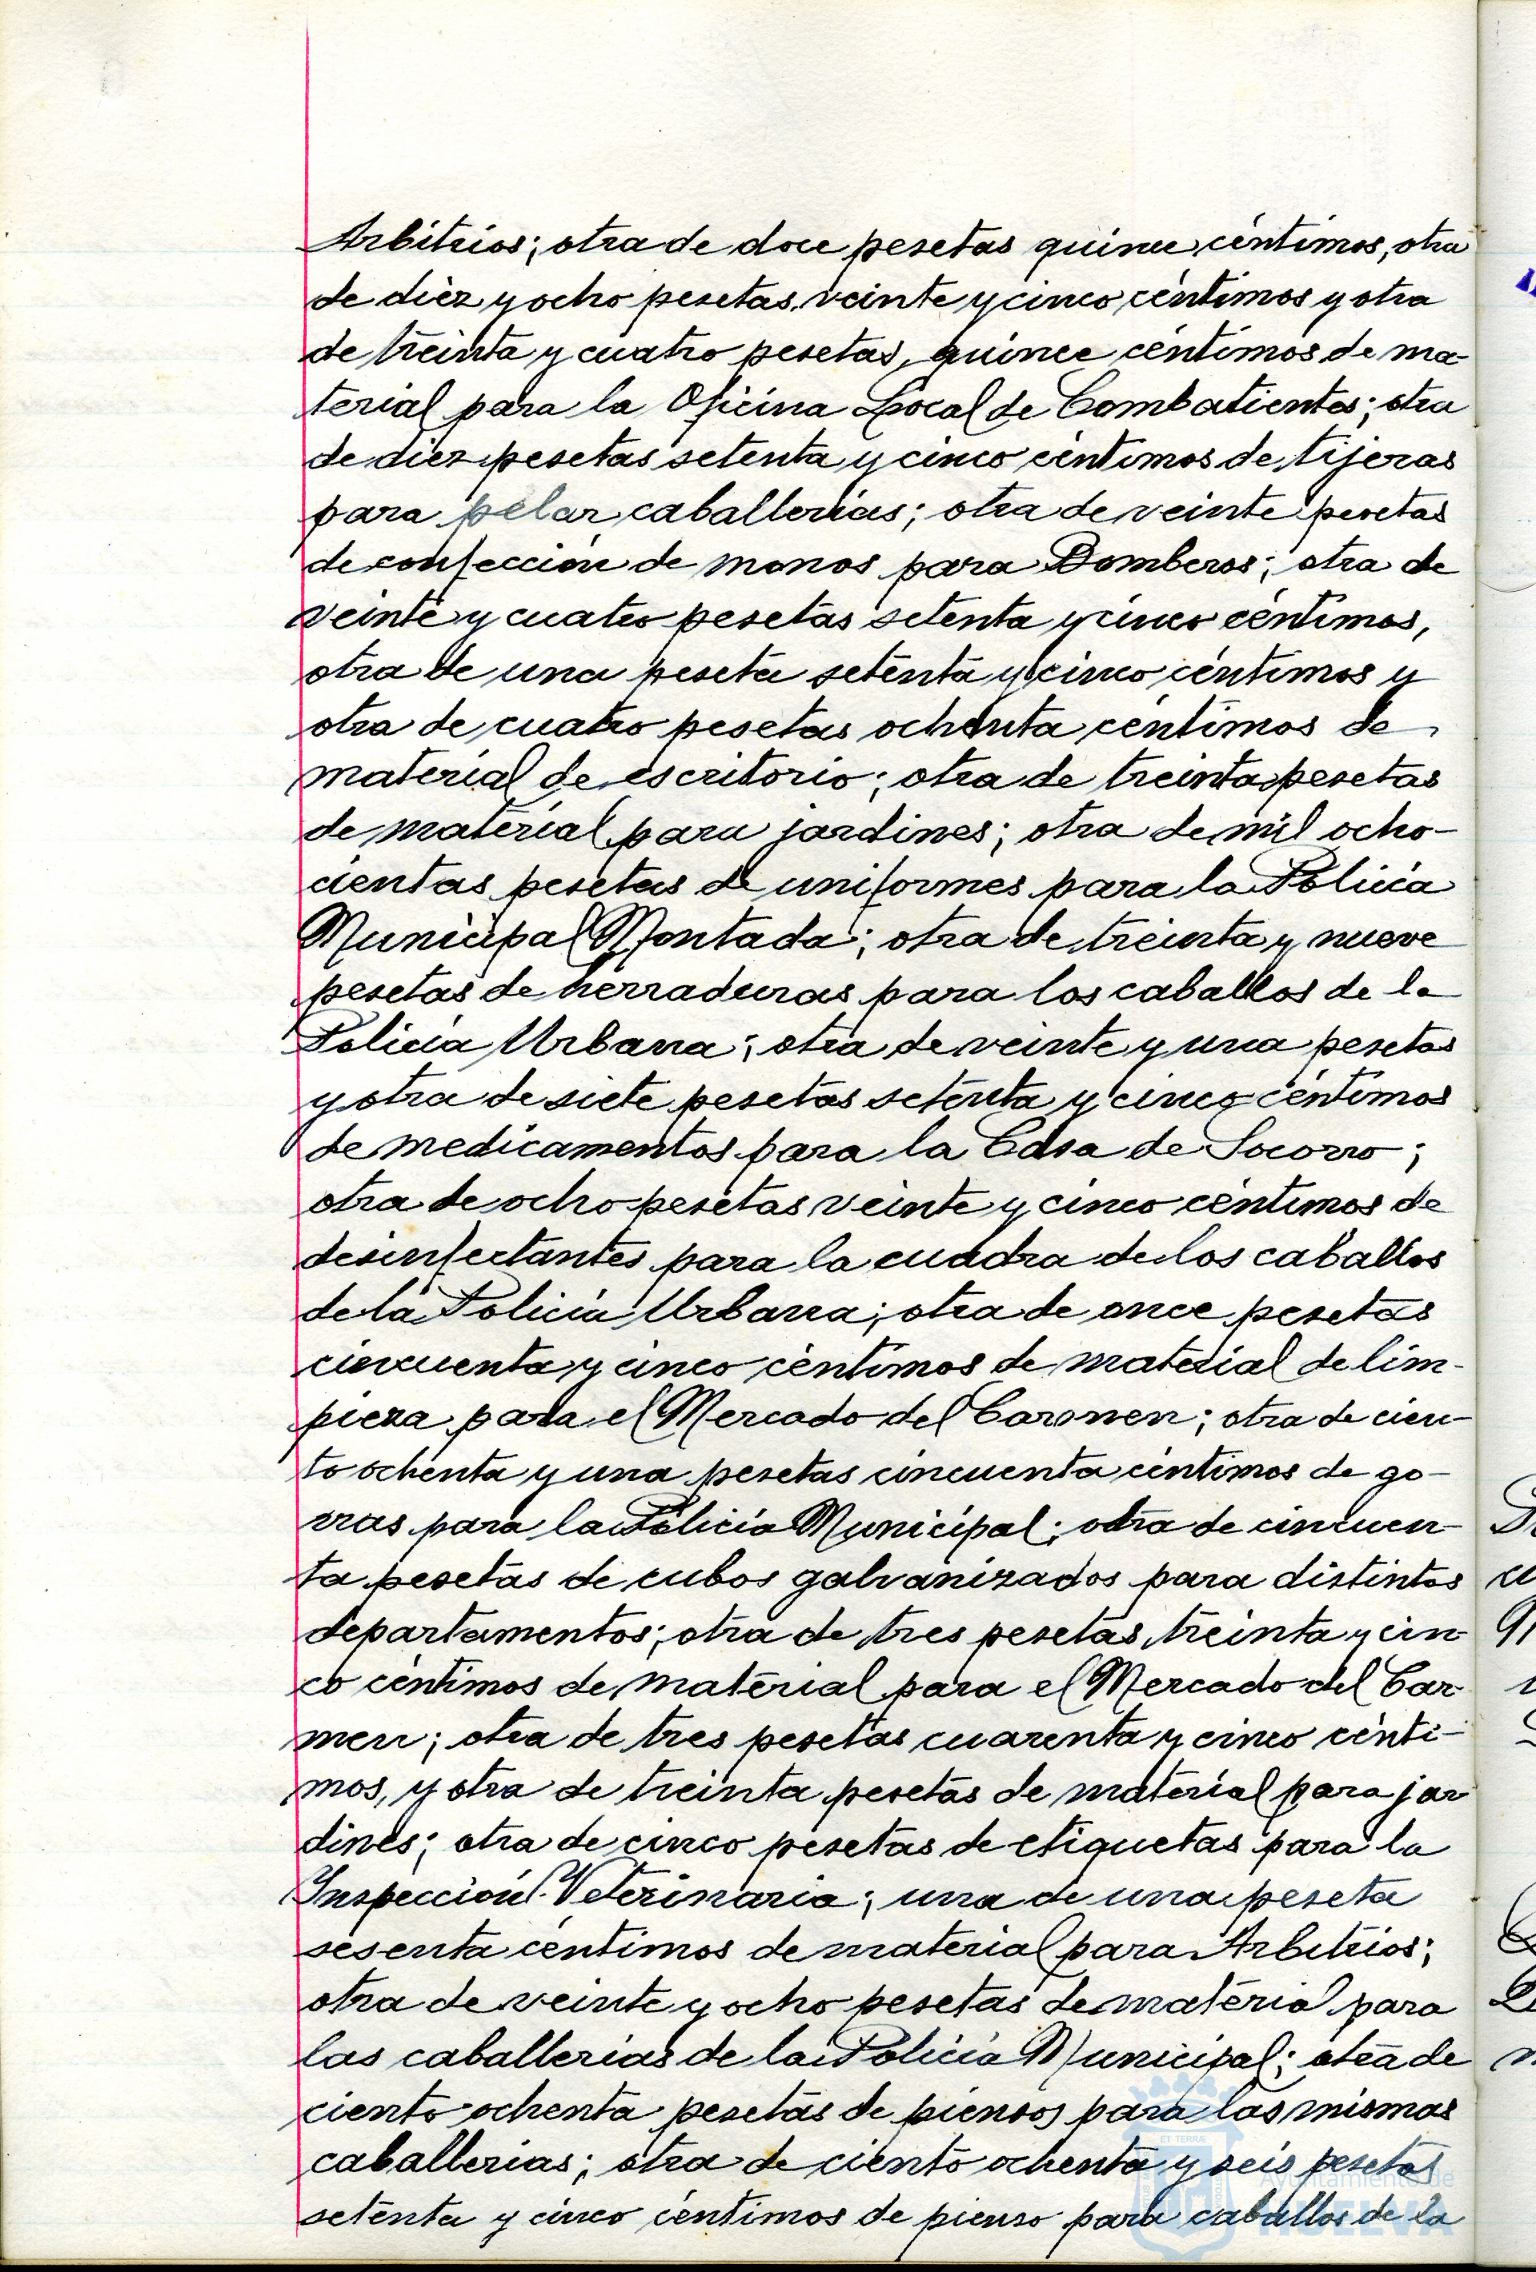 Arbitrios; otra de doce pesetas quince céntimos, otra
de diez y ocho pesetas veinte y cinco céntimos y otra
de treinta y cuatro pesetas, quince céntimos de ma-
terial para la Oficina Local de Combatientes; otra
de diez pesetas setenta y cinco céntimos de tijeras
para pelar caballerías; otra de veinte pesetas
de confección de monos para Bomberos; otra de
veinte y cuatro pesetas setenta y cinco céntimos,
otra de una peseta setenta y cinco céntimos y
otra de cuatro pesetas ochenta céntimos de
material de escritorio; otra de treinta pesetas
de material para jardines; otra de mil ocho-
cientas pesetas de uniformes para la Policía
Municipal Montada; otra de treinta y nueve
pesetas de herraduras para los caballos de la
Policía Urbana; otra de veinte y una pesetas
y otra de siete pesetas setenta y cinco céntimos
de medicamentos para la Casa de Socorro;
otra de ocho pesetas veinte y cinco céntimos de
desinfectantes para la cuadra de los caballos
de la Policía Urbana; otra de once pesetas
cincuenta y cinco céntimos de material de lim-
pieza para el Mercado del Carmen; otra de cien-
to ochenta y una pesetas cincuenta céntimos de go-
rras para la Policía Municipal; otra de cincuen-
ta pesetas de cubos galvanizados para distintos
departamentos; otra de tres pesetas treinta y cin-
co céntimos de material para el Mercado del Car-
men; otra de tres pesetas cuarenta y cinco cénti-
mos, y otra de treinta pesetas de material para jar-
dines; otra de cinco pesetas de etiquetas para la
Inspección Veterinaria; una de una peseta
sesenta céntimos de material para Arbitrios;
otra de veinte y ocho pesetas de material para
las caballerías de la Policía Municipal; otra de
ciento ochenta pesetas de piensos para las mismas
caballerías; otra de ciento ochenta y seis pesetas
setenta y cinco céntimos de pienso para caballos de la
Ayuntamiento de
HUELVA